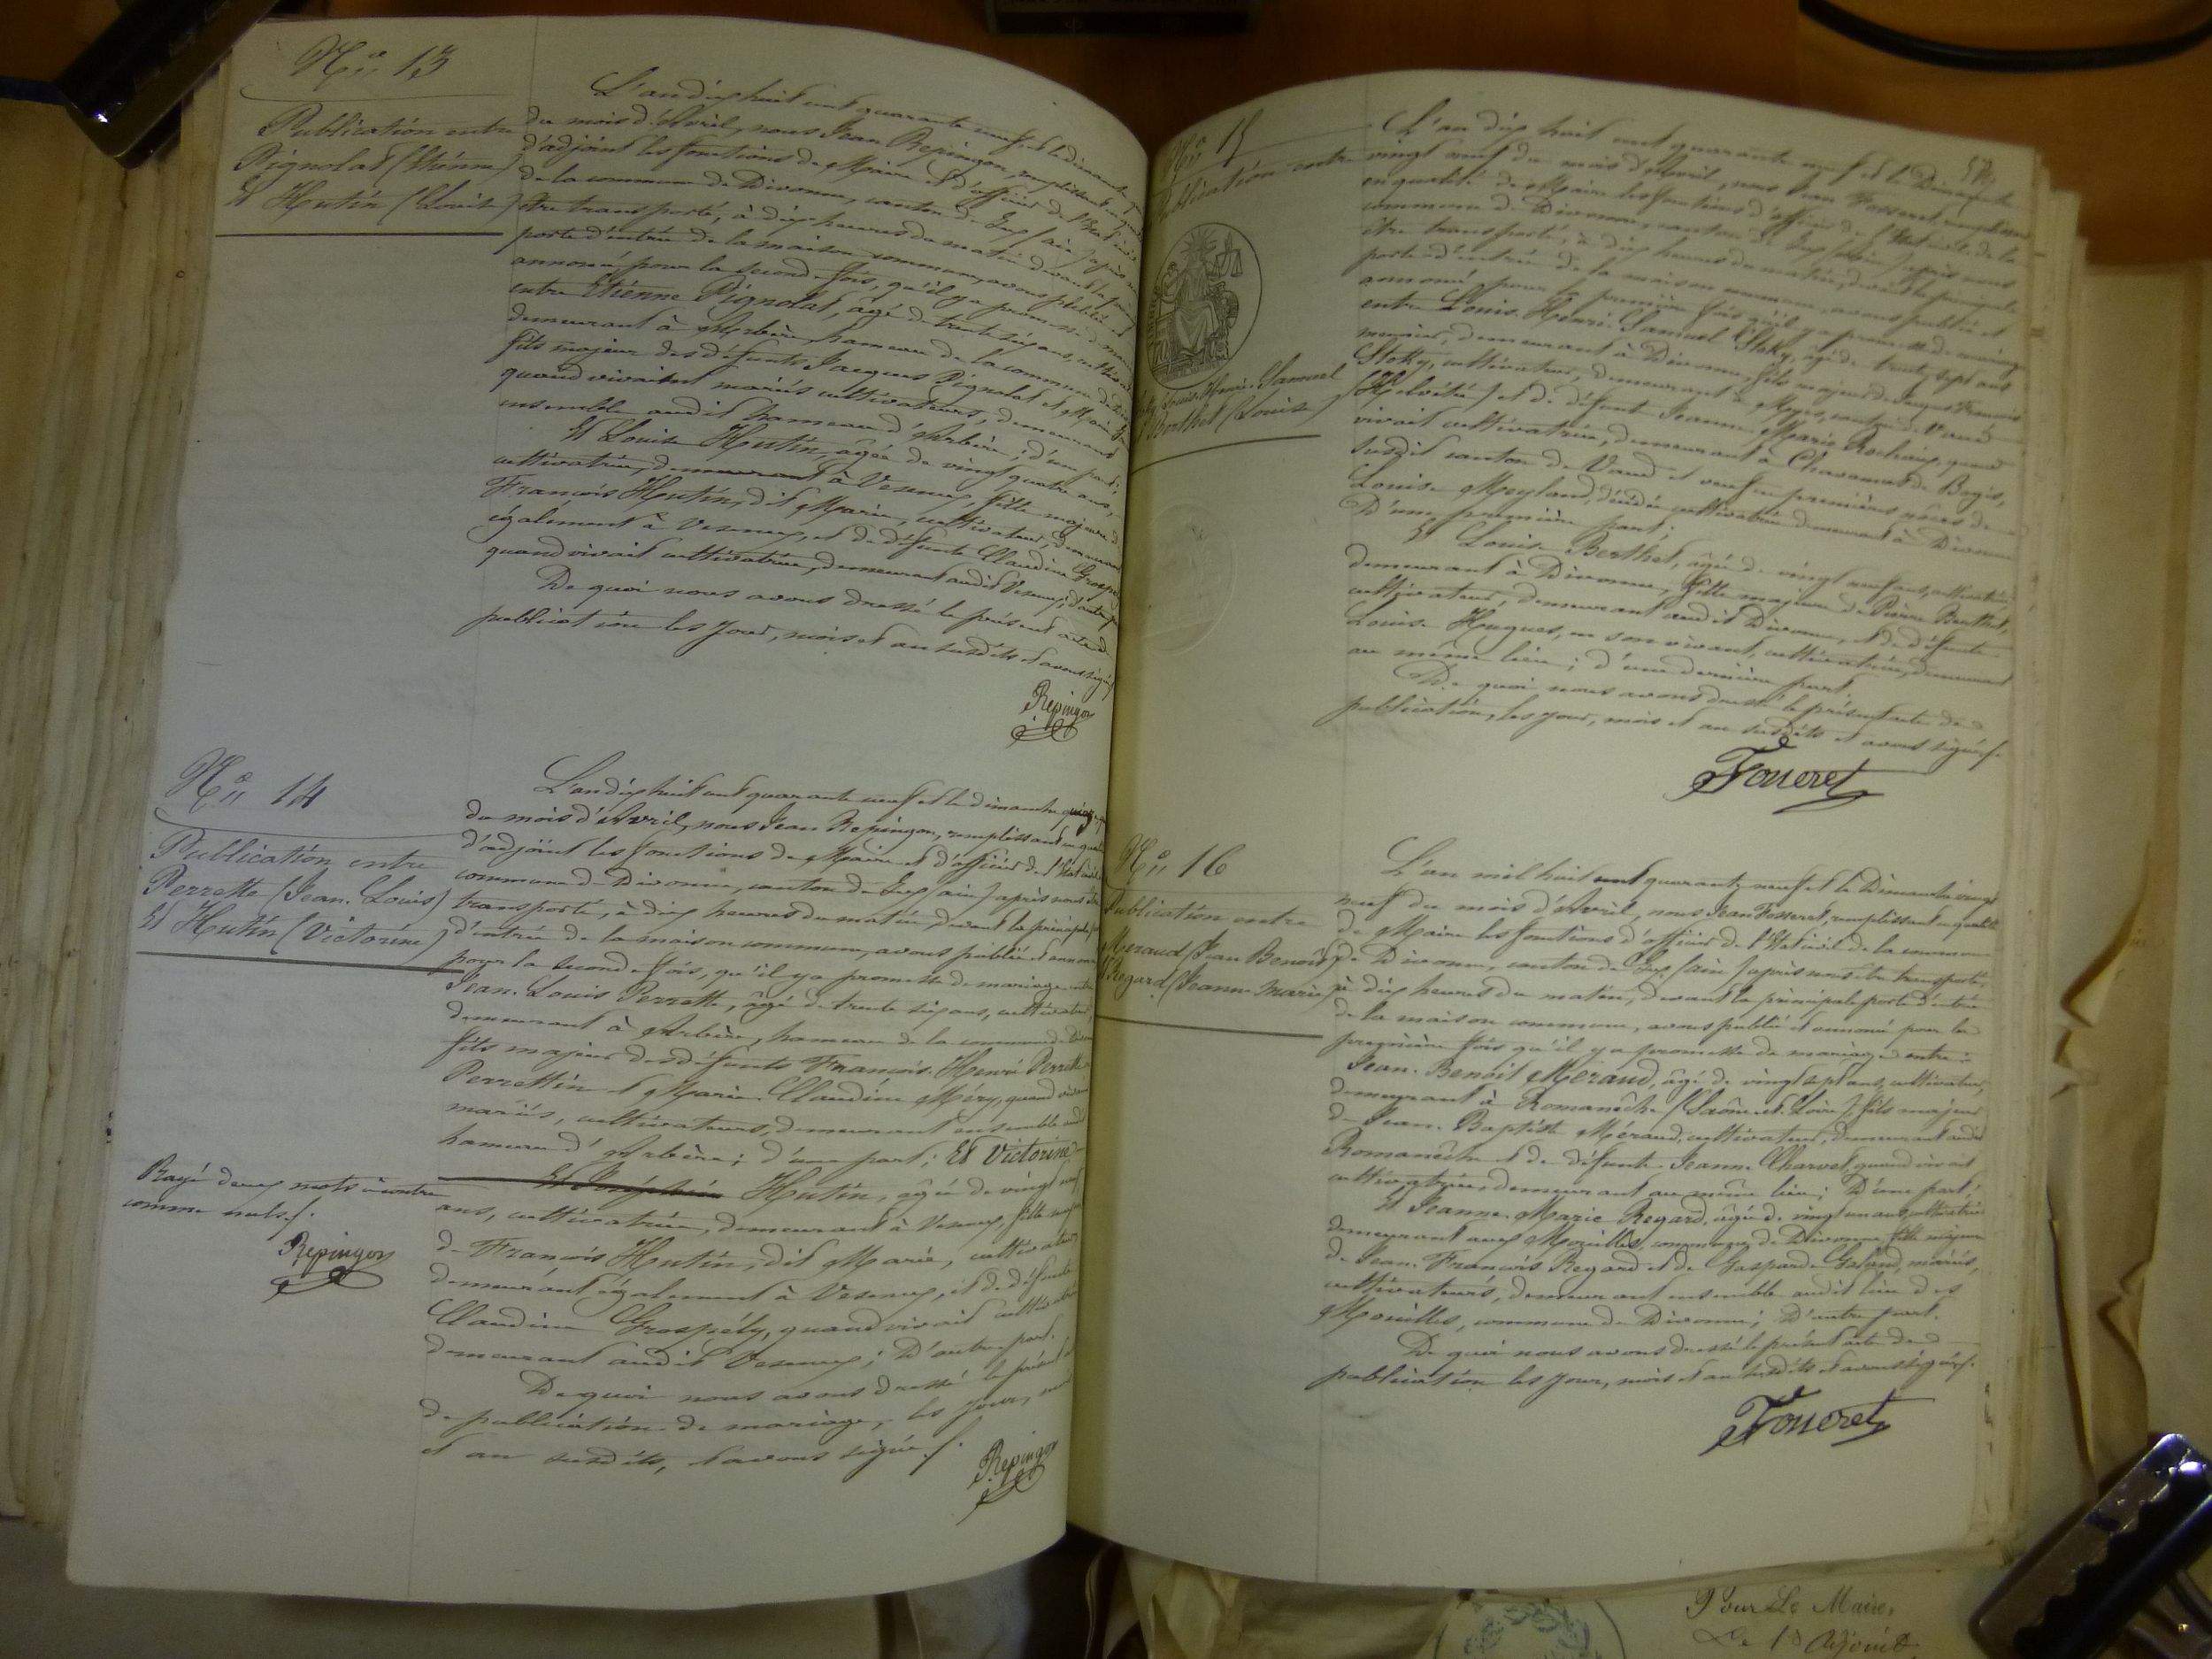 N° 13
Publication entre
Pignolat (Etienne)
Et Hutin (Louise)
L'an dix huit cent quarante neuf et le dimanche
du mois d'Avril, nous Jean Repingon, remplissant en qualité
d'adjoint les fonctions de Maire et d'officier de l'Etat civil
de la commune de Divonne, canton de Gex (ain) après nous
être transporté, à dix heures du matin devant la principale
porte d'entrée de la maison commune, avons publié et
annoncé pour la seconde fois, qu'il y a promesse de mariage
entre Etienne Pignolat, âgé de trente six ans, cultivateur
demeurant à Arbère, hameau de la commune de Divonne
fils majeur des défunts Jacques Pignolat et Marie
quand vivaient mariés cultivateurs, demeurant
ensemble audit hameau d'Arbère; d'une part;
Et Louise Hutin, âgée de vingt quatre ans,
cultivatrice, demeurant à Vesenex, fille majeure de
François Hutin, dit Marie, cultivateur, demeurant
également à Vesenex, et de défunte Claudine Grospély
quand vivait cultivatrice, demeurant audit Vesenex; d'autre part
De quoi nous avons dressé le présent acte de
publication les jour, mois et an susdits et avons signé./.
Repingon
N° 14
Publication entre
Perrette (Jean-Louis)
Et Hutin (Victorine)
L'an dix huit cent quarante neuf et le dimanche quinze
du mois d'Avril, nous Jean Repingon, remplissant en qualité
d'adjoint les fonctions de Maire et d'officier de l'Etat civil de la
commune de Divonne, canton de Gex (ain) après nous être
transporté, à dix heures du matin, devant la principale porte
d'entrée de la maison commune, avons publié et annoncé
pour la seconde fois, qu'il y a promesse de mariage entre
Jean-Louis Perrette, âgé de trente six ans, cultivateur,
demeurant à Arbère, hameau de la commune de Divonne
fils majeur des défunts François-Henri Perrette
Perrettin et Marie Claudine Méry, quand vivaient
mariés, cultivateurs, demeurant ensemble audit
hameau d'Arbère; d'une part; Et Victorine
Et Joséphine Hutin, âgée de vingt neuf
ans, cultivatrice, demeurant à Vesenex, fille majeure
de François Hutin, dit Marie, cultivateur
demeurant également à Vesenex, et de défunte
Claudine Grospély, quand vivait cultivatrice
demeurant audit Vesenex; D'autre part.
De quoi nous avons dressé le présent acte
de publication de mariage, les jour, mois
et an susdits, et avons signé./.
Repingon
Rayé deux mots ci-contre
comme nuls./.
Repingon
N° 15
Publication entre
Stoky Louis-Henri-Samuel
Et Berthet (Louise)
L'an dix huit cent quarante neuf et le Dimanche
vingt neuf du mois d'Avril, nous Jean Fosseret, remplissant
en qualité de Maire les fonctions d'officier de l'Etat civil de la
commune de Divonne, canton de Gex (ain) après nous
être transporté, à dix heures du matin, devant la principale
porte d'entrée de la maison commune, avons publié et
annoncé pour la première fois qu'il y a promesse de mariage
entre Louis-Henri-Samuel Stoky, âgé de trente sept ans
meunier, demeurant à Divonne, fils majeur de Jacques François
Stoky, cultivateur, demeurant à canton de Vaud
(Helvétie) et de défunte Jeanne Marie Rochaix, quand
vivait cultivatrice, demeurant à Chavannes de Bogis,
susdit canton de Vaud et veuf en premières nôces de
Louise Meyland, décédée cultivatrice demeurant à Divonne
D'une première part;
Et Louise Berthet, âgée de vingt neuf ans, cultivatrice
demeurant à Divonne, fille majeure de Pierre Berthet,
cultivateur, demeurant audit Divonne, et de défunte
Louise Hugues, en son vivant, cultivatrice, demeurant
au même lieu; d'une dernière part.
De quoi nous avons dressé le présent acte de
publication, les jour, mois et an susdits et avons signé./.
N° 16
Publication entre
Meraud (Jean Benoit)
Et Regard (Jeanne Marie)
L'an mil huit cent quarante neuf et le Dimanche vingt
neuf du mois d'Avril, nous Jean Fosseret, remplissant en qualité
de Maire les fonctions d'officier de l'Etat civil de la commune
de Divonne, canton de Gex (ain) après nous être transporté,
à dix heures du matin, devant la principale porte d'entrée
de la maison commune, avons publié et annoncé pour la
première fois qu'il y a promesse de mariage entre
Jean-Benoit Meraud, âgé de vingt sept ans, cultivateur,
demeurant à Romanèche (Saône et Loire), fils majeur
de Jean-Baptiste Méraud, cultivateur, demeurant audit
Romanèche et de défunte Jeanne Charvet, quand vivait
cultivatrice, demeurant au même lieu; D'une part;
Et Jeanne-Marie Regard, âgée de vingt un ans, cultivatrice
demeurant aux Mouilles, commune de Divonne, fille majeure
de Jean-François Regard et de Gasparde Galand, mariés,
cultivateurs, demeurant ensemble audit lieu des
Mouilles, commune de Divonne; D'autre part.
De quoi nous avons dressé le présent acte de
publication les jour, mois et an susdits et avons signé./.
Pour Le Maire,
Le 1er Adjoint